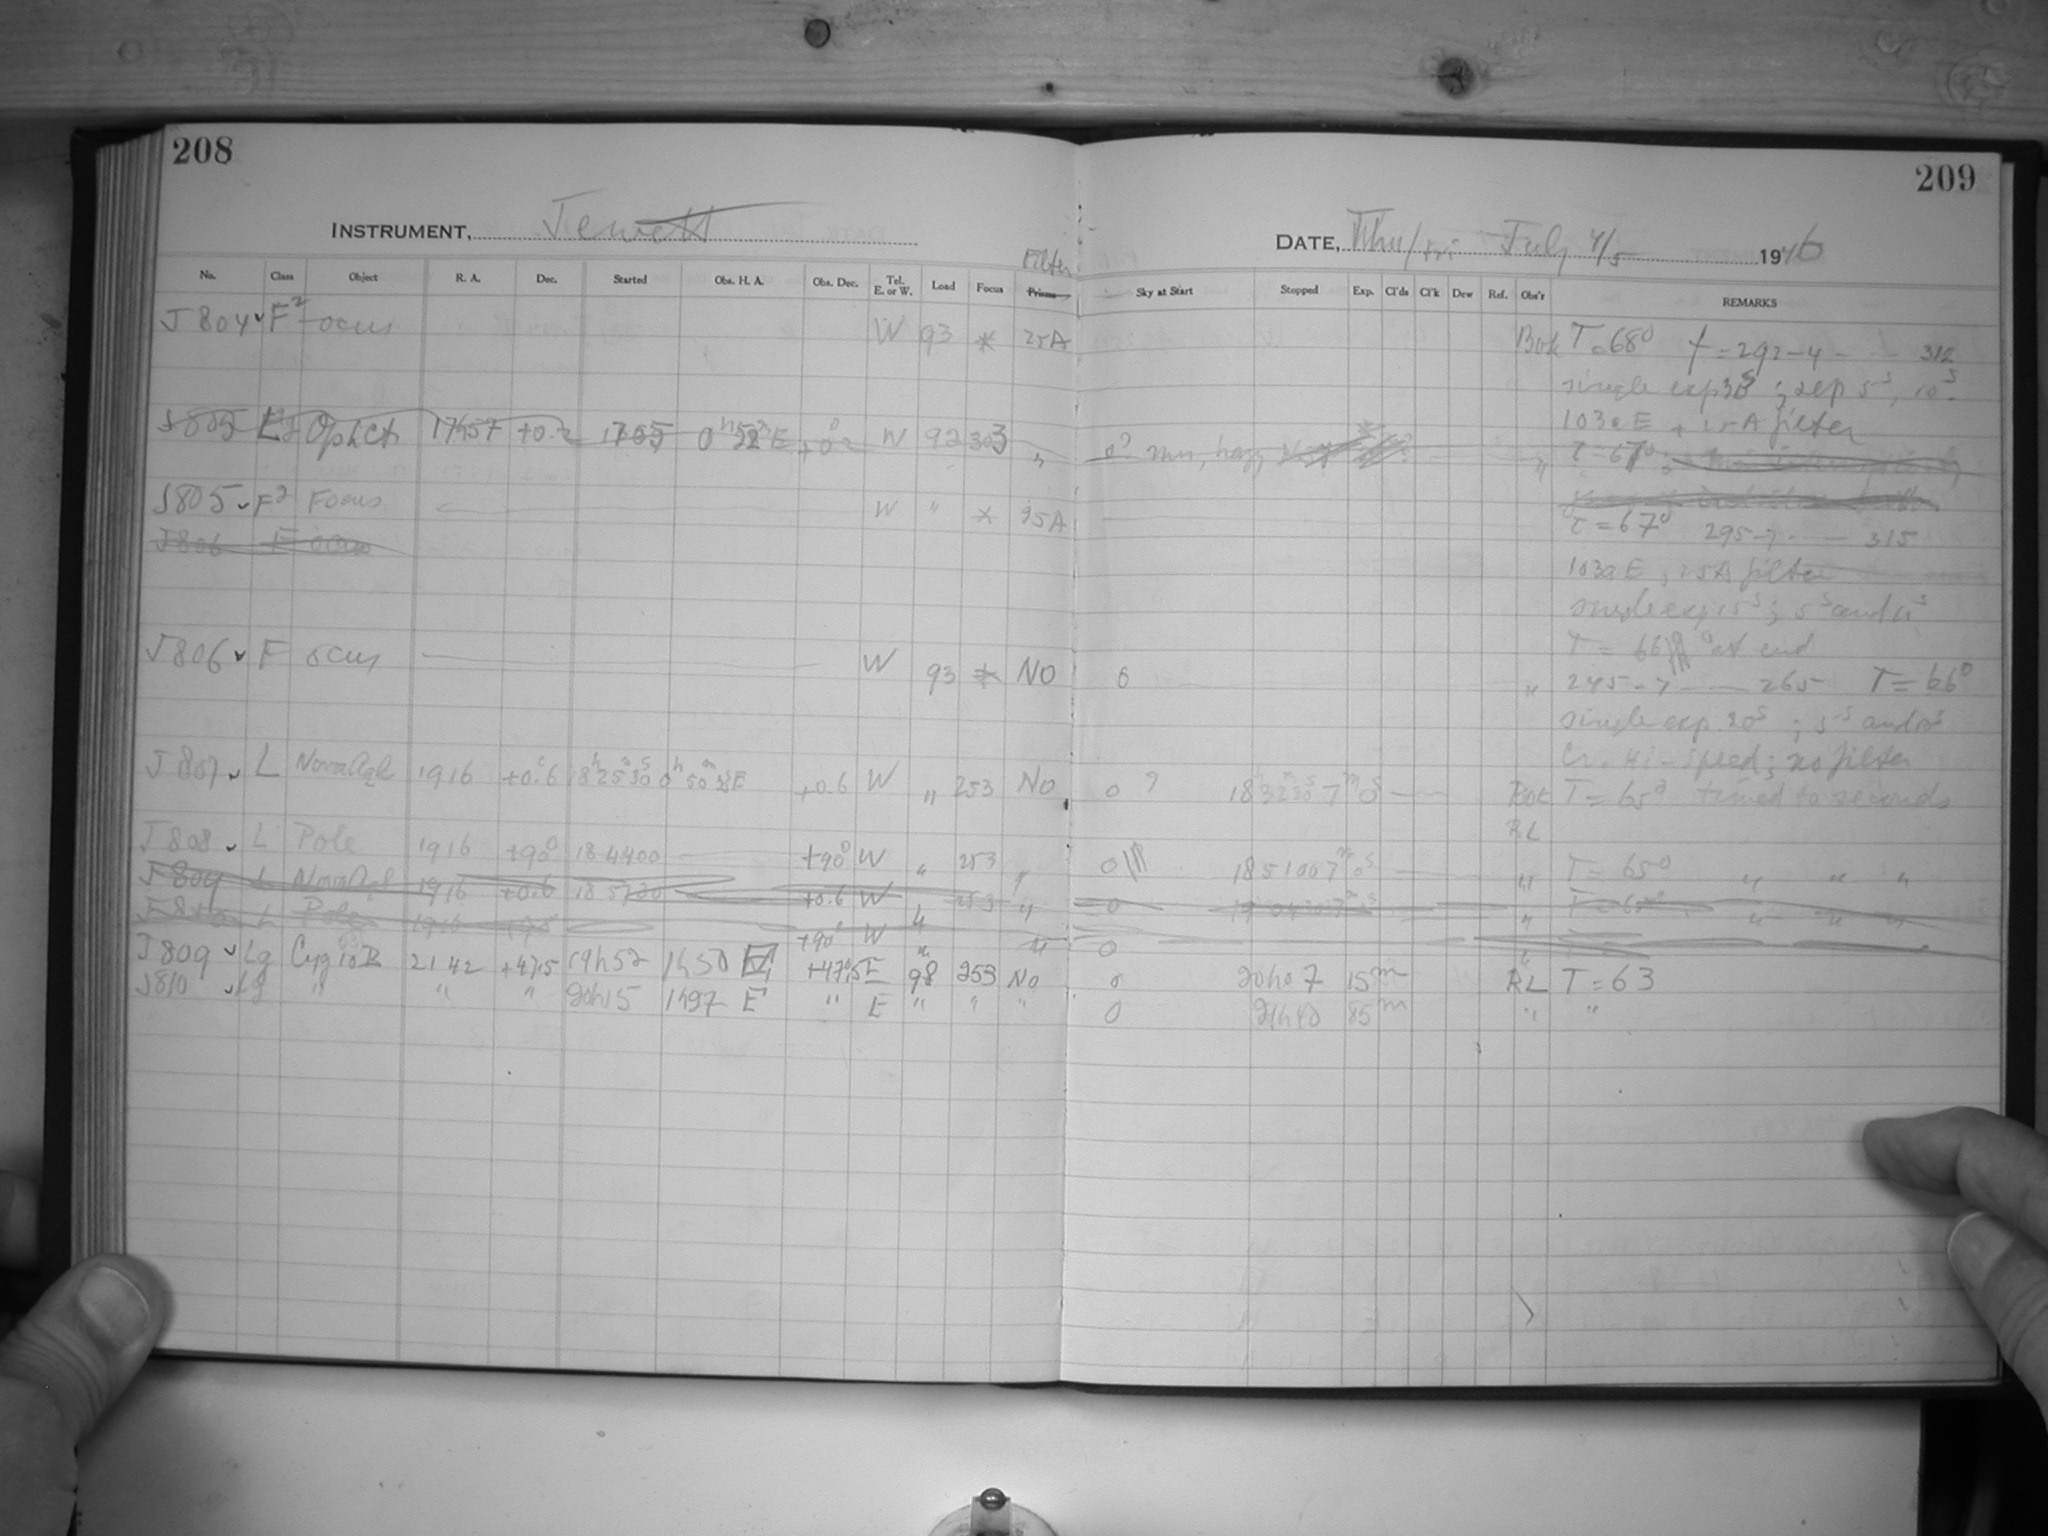 208
209
INSTRUMENT, Jewett
DATE, Thu/Fri July 4/5 1946
Filter
No. Class Object R. A. Dec. Started Obs. H. A. Obs. Dec. Tel. E. or W. Load Focus Prisms Sky at Start Stopped Exp. Cl'ds Cl'k Dew Ref. Obs'r REMARKS
J804 F2 Focus W 93 * 25A Bok T = 68° f = 292-4 - - 312
single exp ; 5s, 10s
103aE + 25A filter
J805 Oph Ct 17h57 +0.2 1705 W 92 303 " 0? haze " T = 67°
J805 F2 Focus W " * 25A
J806 F ocus T = 67° 295-7 - 315
103aE, 25A filter
single exp 15s; 5s and
J806 F ocus W 93 * NO 0 T = 66 at end
" 245-7 - 265 T = 66°
single exp 20s ; 5s and
Cr. Hi-speed; no filter
J807 L Nova Aql 1916 +0.6 18h25m30s 0h50m E +0.6 W " 253 No 0 ? 18h32m30s 7m0s Bok T = 65° timed to seconds
RL
J808 L Pole 1916 +90° 18 44 00 +90° W " 253 " 0 18 51 00 7m0s " T = 65° " " "
J809 L Nova Aql 1916 +0.6 18 57 30 +0.6 W " 253 " 0 " T = 65° " " "
J810 L Pole 1916 +90° +90° W " " 0 "
J809 Lg Cyg 2142 +47.5 19h52 1h50 E +47.5 E 98 253 No 0 20h07 15m RL T = 63
J810 Lg " " " 20h15 1h97 E " E " " " 0 21h40 85m " "